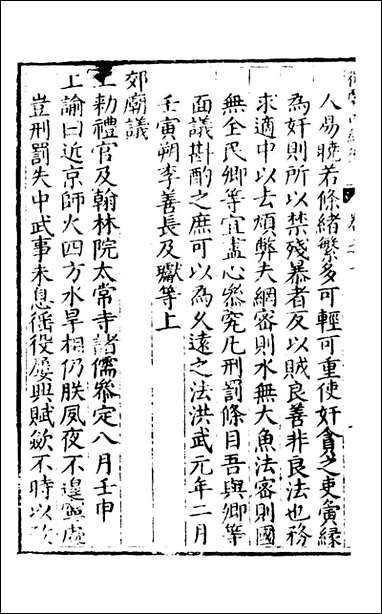 人易曉若條緒繁多可輕可重使奸貪之吏夤緣
為奸則所以禁殘暴者反以賊良善非良法也務
求適中以去煩弊夫網密則水無大魚法密則國
無全民卿等宜盡心參究凡刑罰條目吾與卿等
面議斟酌之庶可以為久遠之法洪武元年二月
壬寅朔李善長及瓛等上
郊廟議
上勑禮官及翰林院太常寺諸儒參定八月壬申
上諭曰近京師火四方水旱相仍朕夙夜不遑寧處
豈刑罰失中武事未息徭役屢興賦歛不時以致